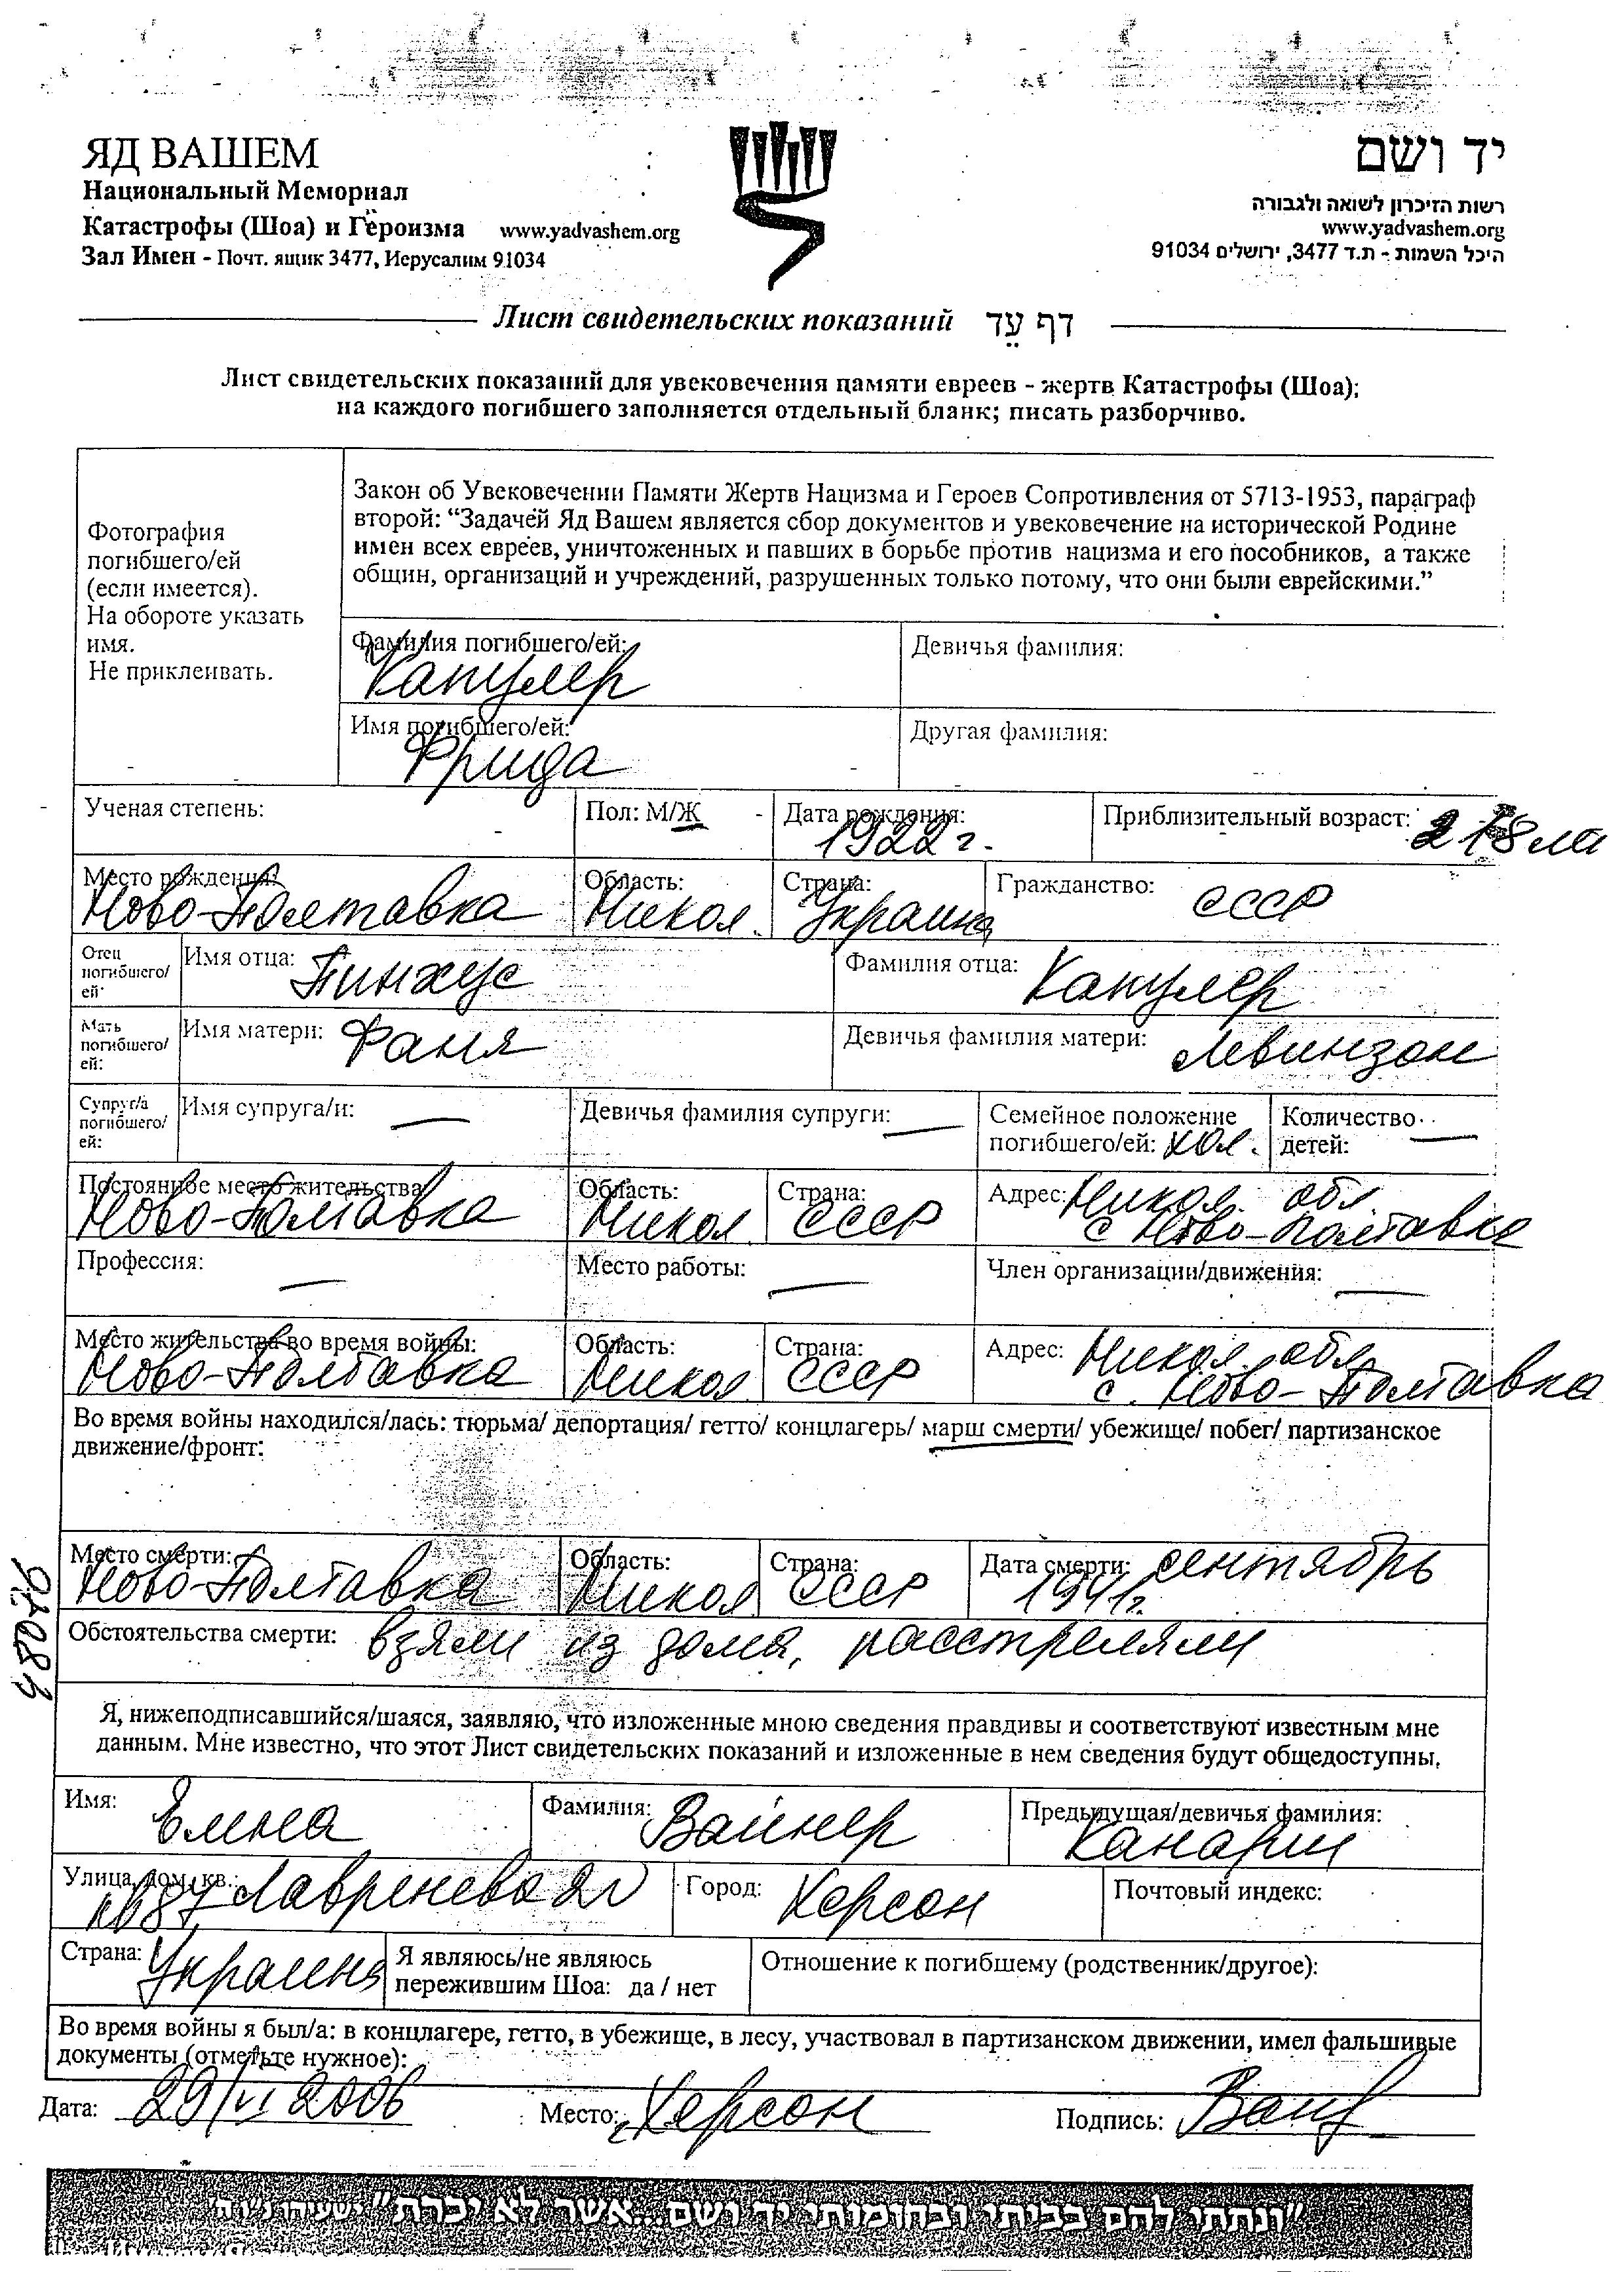 ЯД ВАШЕМ
Национальный Мемориал
Катастрофы (Шоа) и Героизма www.yadvashem.org
Зал Имен - Почт. ящик 3477, Иерусалим 91034
יד ושם
רשות הזיכרון לשואה ולגבורה
www.yadvashem.org
היכל השמות - ת.ד 3477, ירושלים 91034
Лист свидетельских показаний דף עֵד
Лист свидетельских показаний для увековечения памяти евреев - жертв Катастрофы (Шоа);
на каждого погибшего заполняется отдельный бланк; писать разборчиво.
Фотография
погибшего/ей
(если имеется).
На обороте указать
имя.
Не приклеивать.
Закон об Увековечении Памяти Жертв Нацизма и Героев Сопротивления от 5713-1953, параграф
второй: “Задачей Яд Вашем является сбор документов и увековечение на исторической Родине
имен всех евреев, уничтоженных и павших в борьбе против нацизма и его пособников, а также
общин, организаций и учреждений, разрушенных только потому, что они были еврейскими.”
Фамилия погибшего/ей: Капулер
Девичья фамилия:
Имя погибшего/ей: Фрида
Другая фамилия:
Ученая степень:
Пол: М/Ж
Дата рождения: 1922 г.
Приблизительный возраст:
Место рождения: Ново-Полтавка
Область: Никол.
Страна: Украина
Гражданство: СССР
Отец
погибшего/
ей
Имя отца: Пинхус
Фамилия отца: Капулер
Мать
погибшего/
ей:
Имя матери: Фаня
Девичья фамилия матери: Левинзон
Супруг/а
погибшего/
ей:
Имя супруга/и: —
Девичья фамилия супруги: —
Семейное положение
погибшего/ей: хол.
Количество
детей: —
Постоянное место жительства Ново-Полтавка
Область: Никол
Страна: СССР
Адрес: Никол. обл.
с Ново-Полтавка
Профессия: —
Место работы: —
Член организации/движения: —
Место жительства во время войны: Ново-Полтавка
Область: Никол
Страна: СССР
Адрес: Никол. обл
с. Ново-Полтавка
Во время войны находился/лась: тюрьма/ депортация/ гетто/ концлагерь/ марш смерти/ убежище/ побег/ партизанское
движение/фронт:
Место смерти: Ново-Полтавка
Область: Никол
Страна: СССР
Дата смерти: сентябрь
1941г.
Обстоятельства смерти: взяли из дома, расстреляли
Я, нижеподписавшийся/шаяся, заявляю, что изложенные мною сведения правдивы и соответствуют известным мне
данным. Мне известно, что этот Лист свидетельских показаний и изложенные в нем сведения будут общедоступны.
Имя: Елена
Фамилия: Вайнер
Предыдущая/девичья фамилия:
Улица, дом, кв.: Лавренева
Город: Херсон
Почтовый индекс:
Страна: Украина
Я являюсь/не являюсь
пережившим Шоа: да / нет
Отношение к погибшему (родственник/другое):
Во время войны я был/а: в концлагере, гетто, в убежище, в лесу, участвовал в партизанском движении, имел фальшивые
документы (отметьте нужное):
Дата: 29/VI 2006
Место: Херсон
Подпись:
"ונתתי להם בביתי ובחומותי יד ושם...אשר לא יכרת" ישעיהו נ"ו ה'